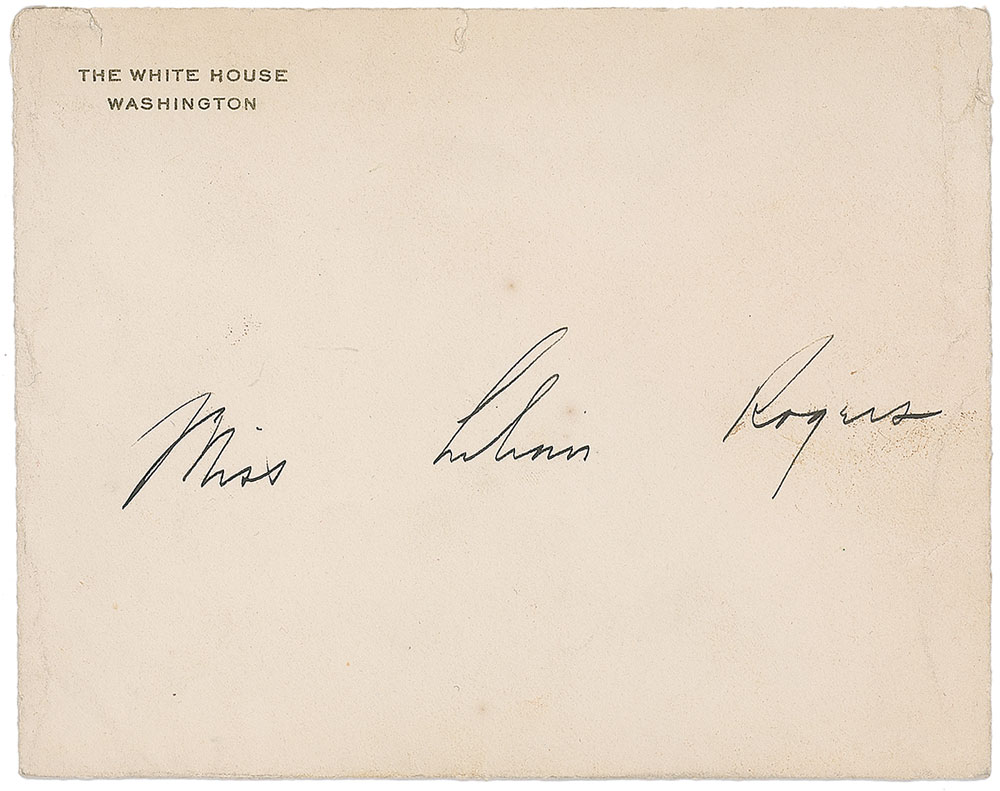 THE WHITE HOUSE
WASHINGTON
Miss Lilian Rogers